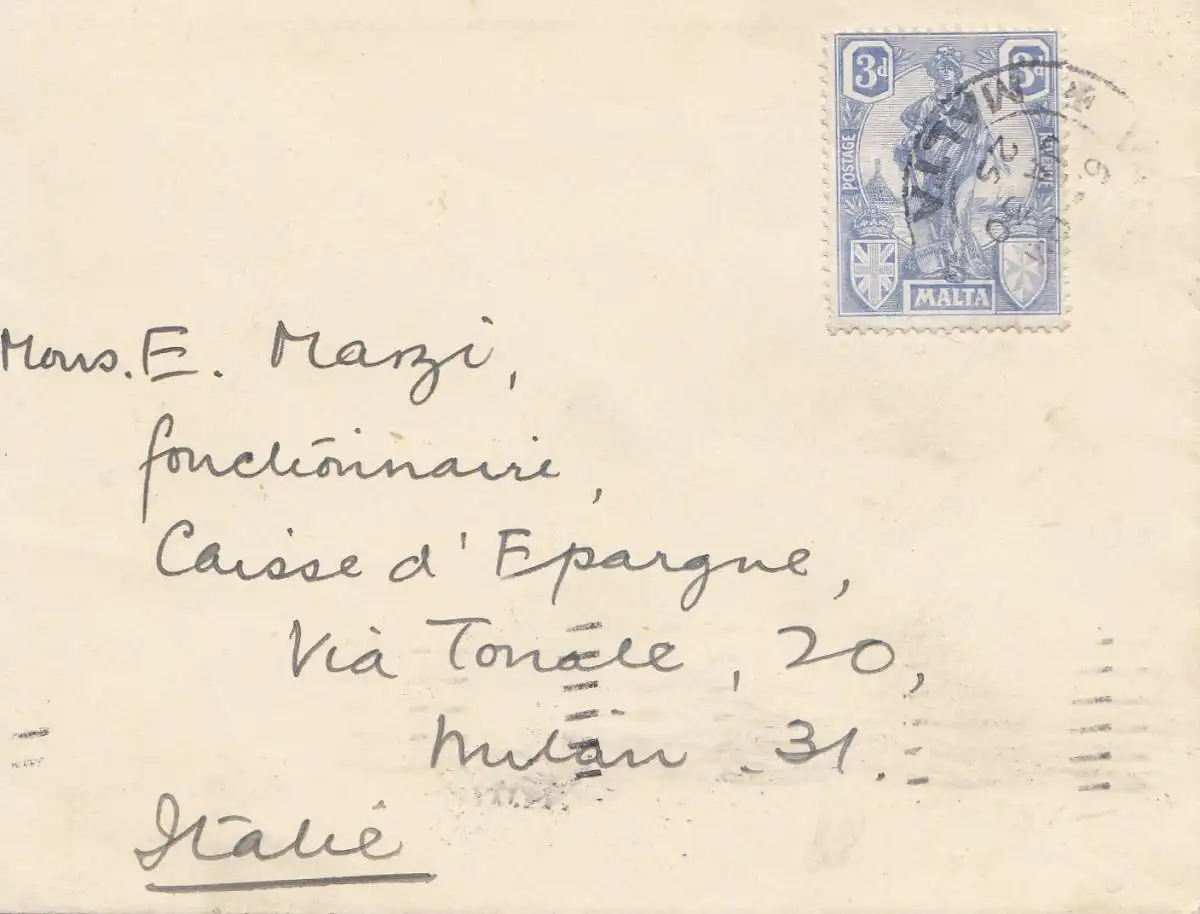 3d 3d
POSTAGE REVENUE
MALTA
MALTA
25
Mons. E. Marzi,
fonctionnaire,
Caisse d'Epargne,
Via Tonale, 20,
Milan . 31.
Italie